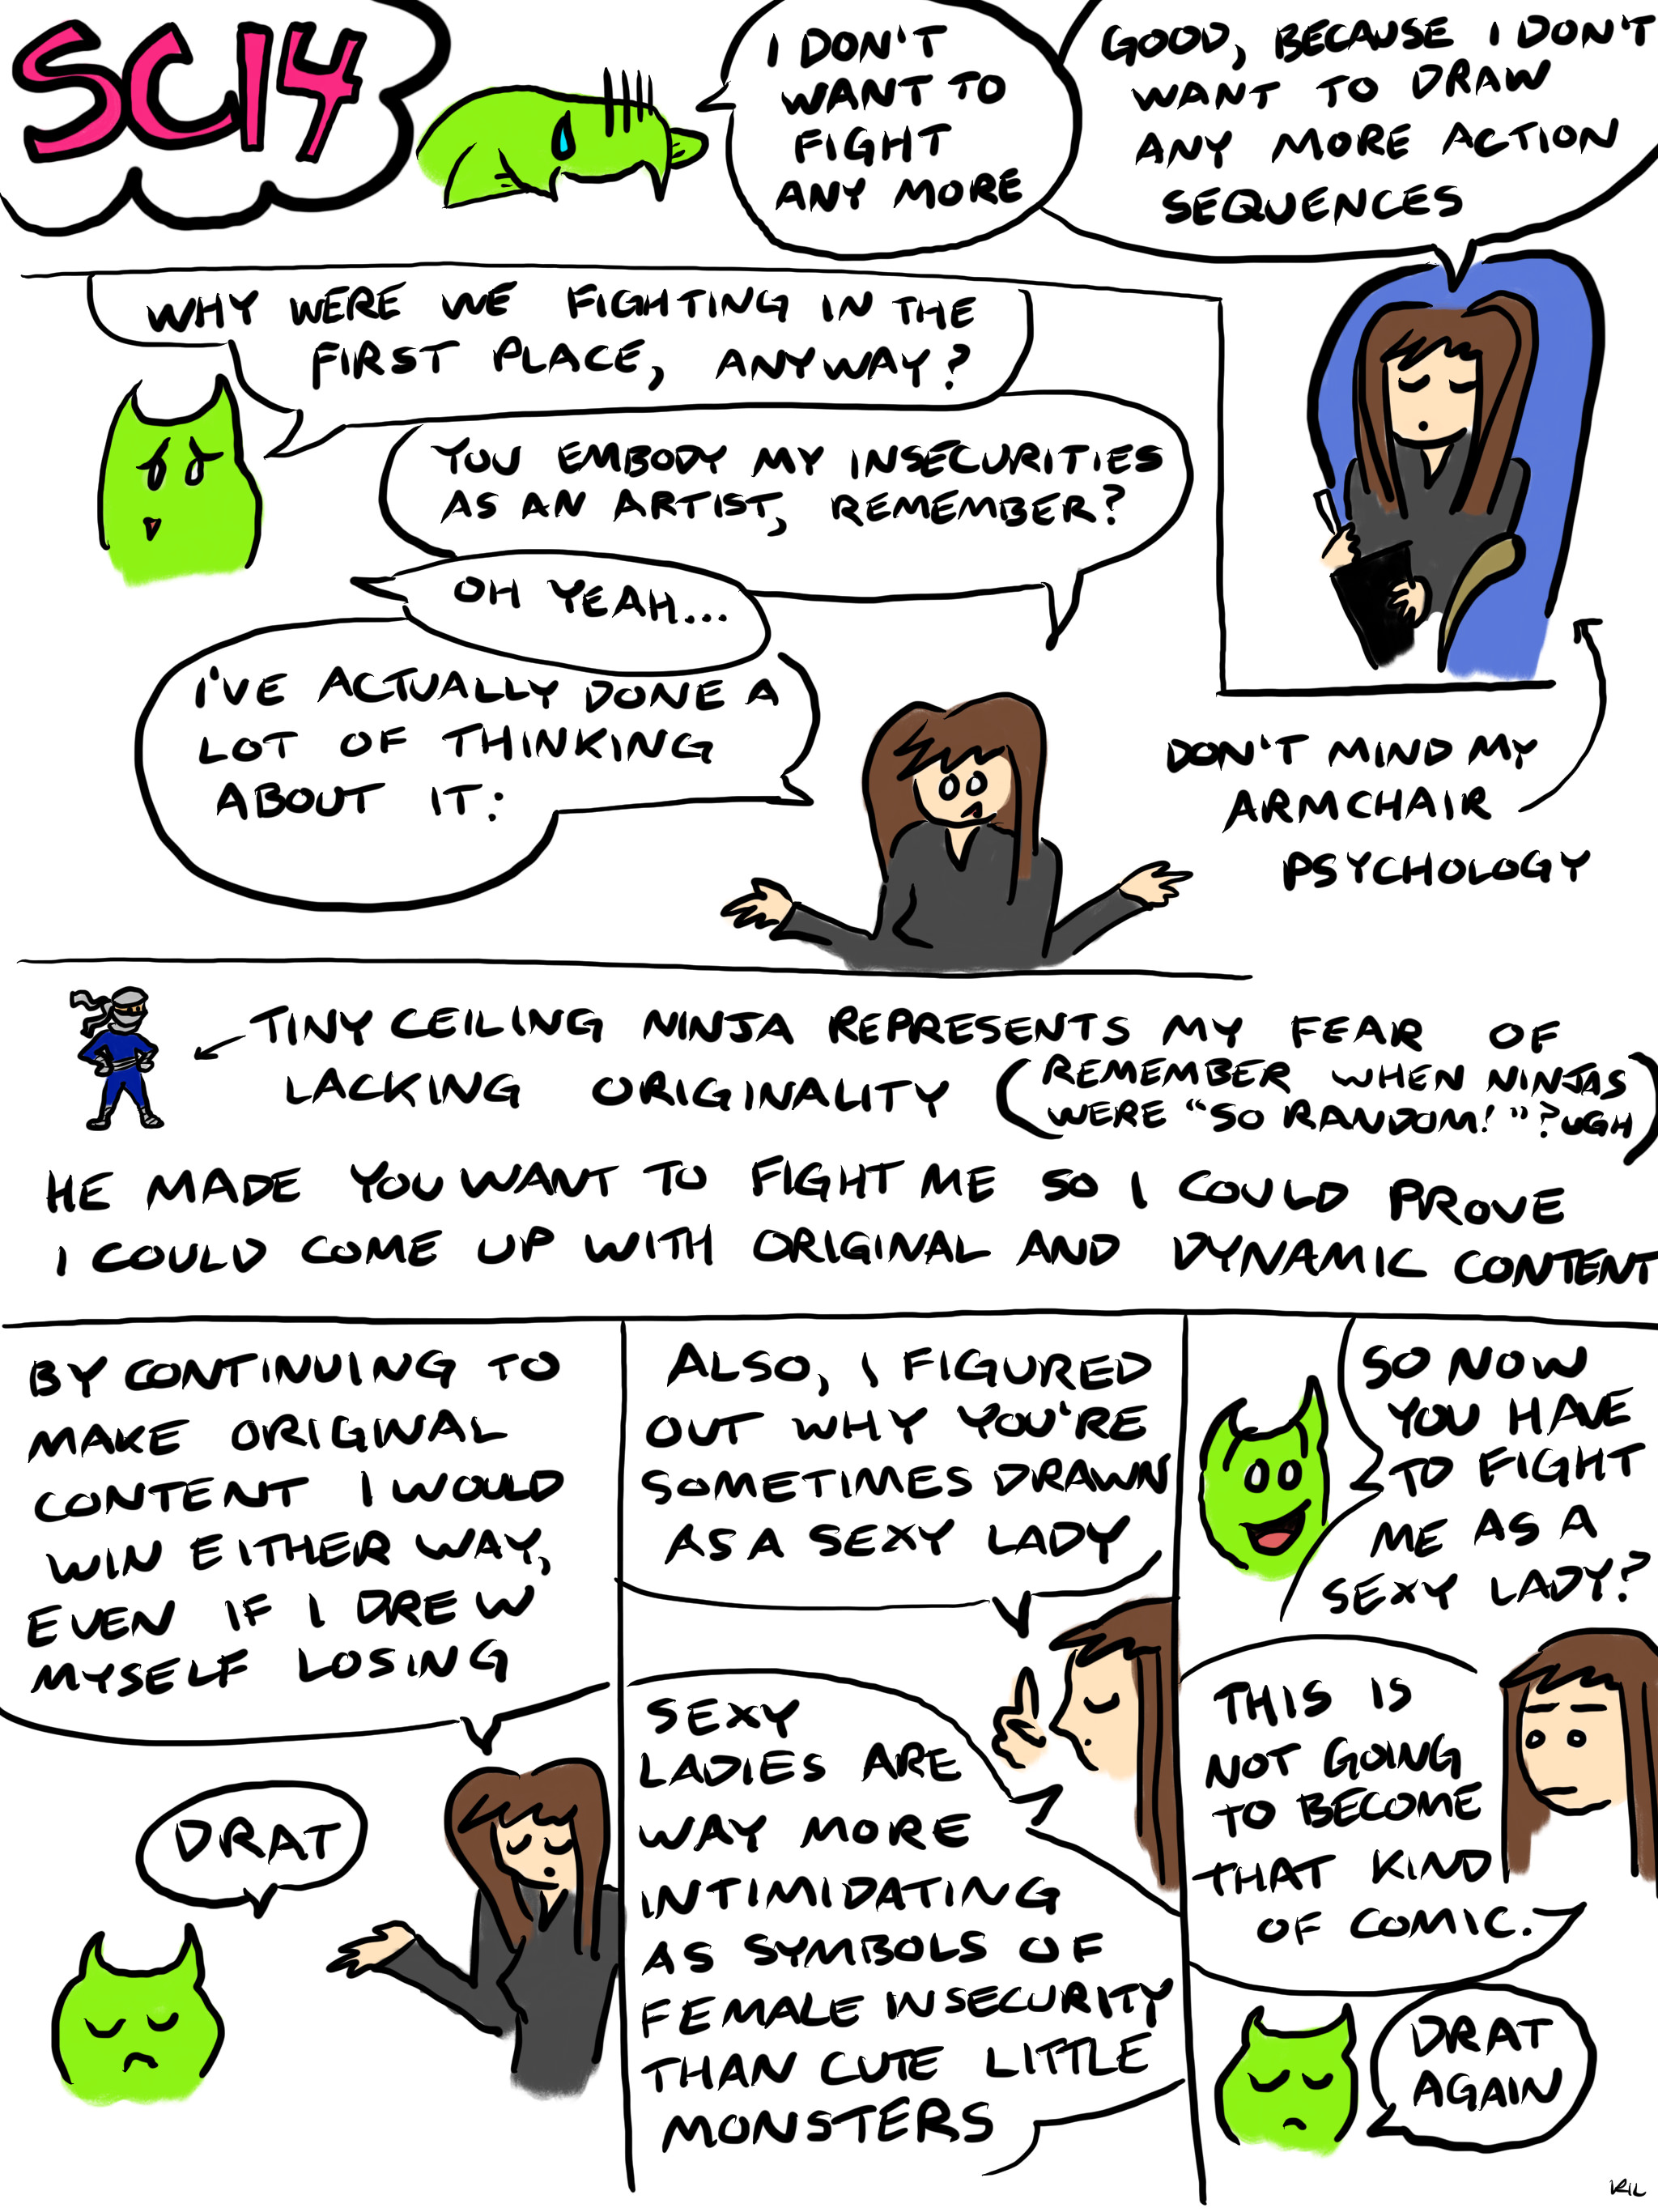 SC14
I DON'T
WANT TO
FIGHT
ANY MORE
GOOD, BECAUSE I DON'T
WANT TO DRAW
ANY MORE ACTION
SEQUENCES
WHY WERE WE FIGHTING IN THE
FIRST PLACE, ANYWAY?
YOU EMBODY MY INSECURITIES
AS AN ARTIST, REMEMBER?
OH YEAH...
I'VE ACTUALLY DONE A
LOT OF THINKING
ABOUT IT:
DON'T MIND MY
ARMCHAIR
PSYCHOLOGY
TINY CEILING NINJA REPRESENTS MY FEAR OF
LACKING ORIGINALITY
(REMEMBER WHEN NINJAS
WERE "SO RANDOM!"? UGH)
HE MADE YOU WANT TO FIGHT ME SO I COULD PROVE
I COULD COME UP WITH ORIGINAL AND DYNAMIC CONTENT
BY CONTINUING TO
MAKE ORIGINAL
CONTENT I WOULD
WIN EITHER WAY,
EVEN IF I DREW
MYSELF LOSING
DRAT
ALSO, I FIGURED
OUT WHY YOU'RE
SOMETIMES DRAWN
AS A SEXY LADY
SEXY
LADIES ARE
WAY MORE
INTIMIDATING
AS SYMBOLS OF
FEMALE INSECURITY
THAN CUTE LITTLE
MONSTERS
SO NOW
YOU HAVE
TO FIGHT
ME AS A
SEXY LADY?
THIS IS
NOT GOING
TO BECOME
THAT KIND
OF COMIC.
DRAT
AGAIN